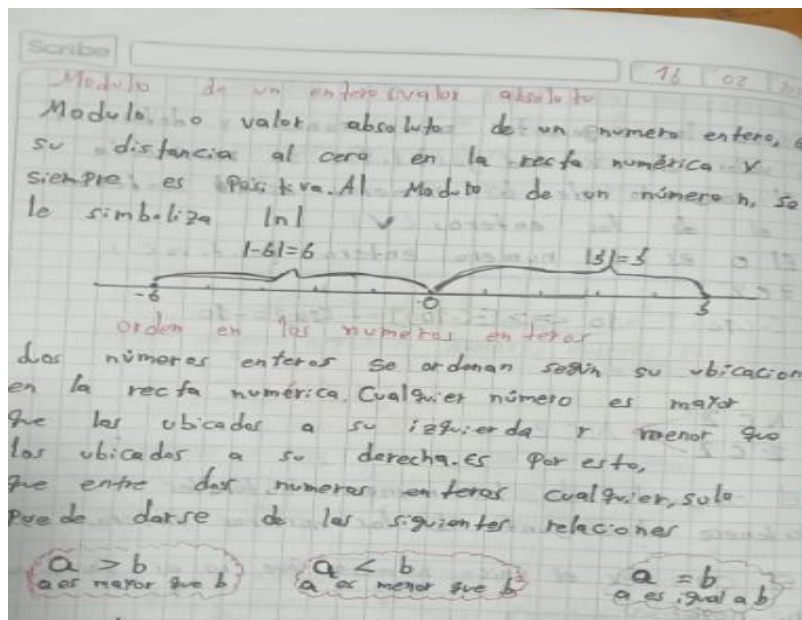 Scribe
16 02
Modulo de un entero (valor absoluto
Modulo o valor absoluto de un numero entero, e
su distancia al cero en la recta numérica y
siempre es Positiva. Al Modulo de un número n, se
le simboliza |n|
|-6|=6 |3|=3
-6 0 3
orden en los numeros enteros
Los números enteros se ordenan según su ubicacion
en la recta numérica. Cualquier número es mayor
que los ubicados a su izquierda y menor que
los ubicados a su derecha. es por esto,
que entre dos numeros enteros cualquier, solo
puede darse de las siguientes relaciones
a > b a < b a = b
a es mayor que b a es menor que b a es igual a b